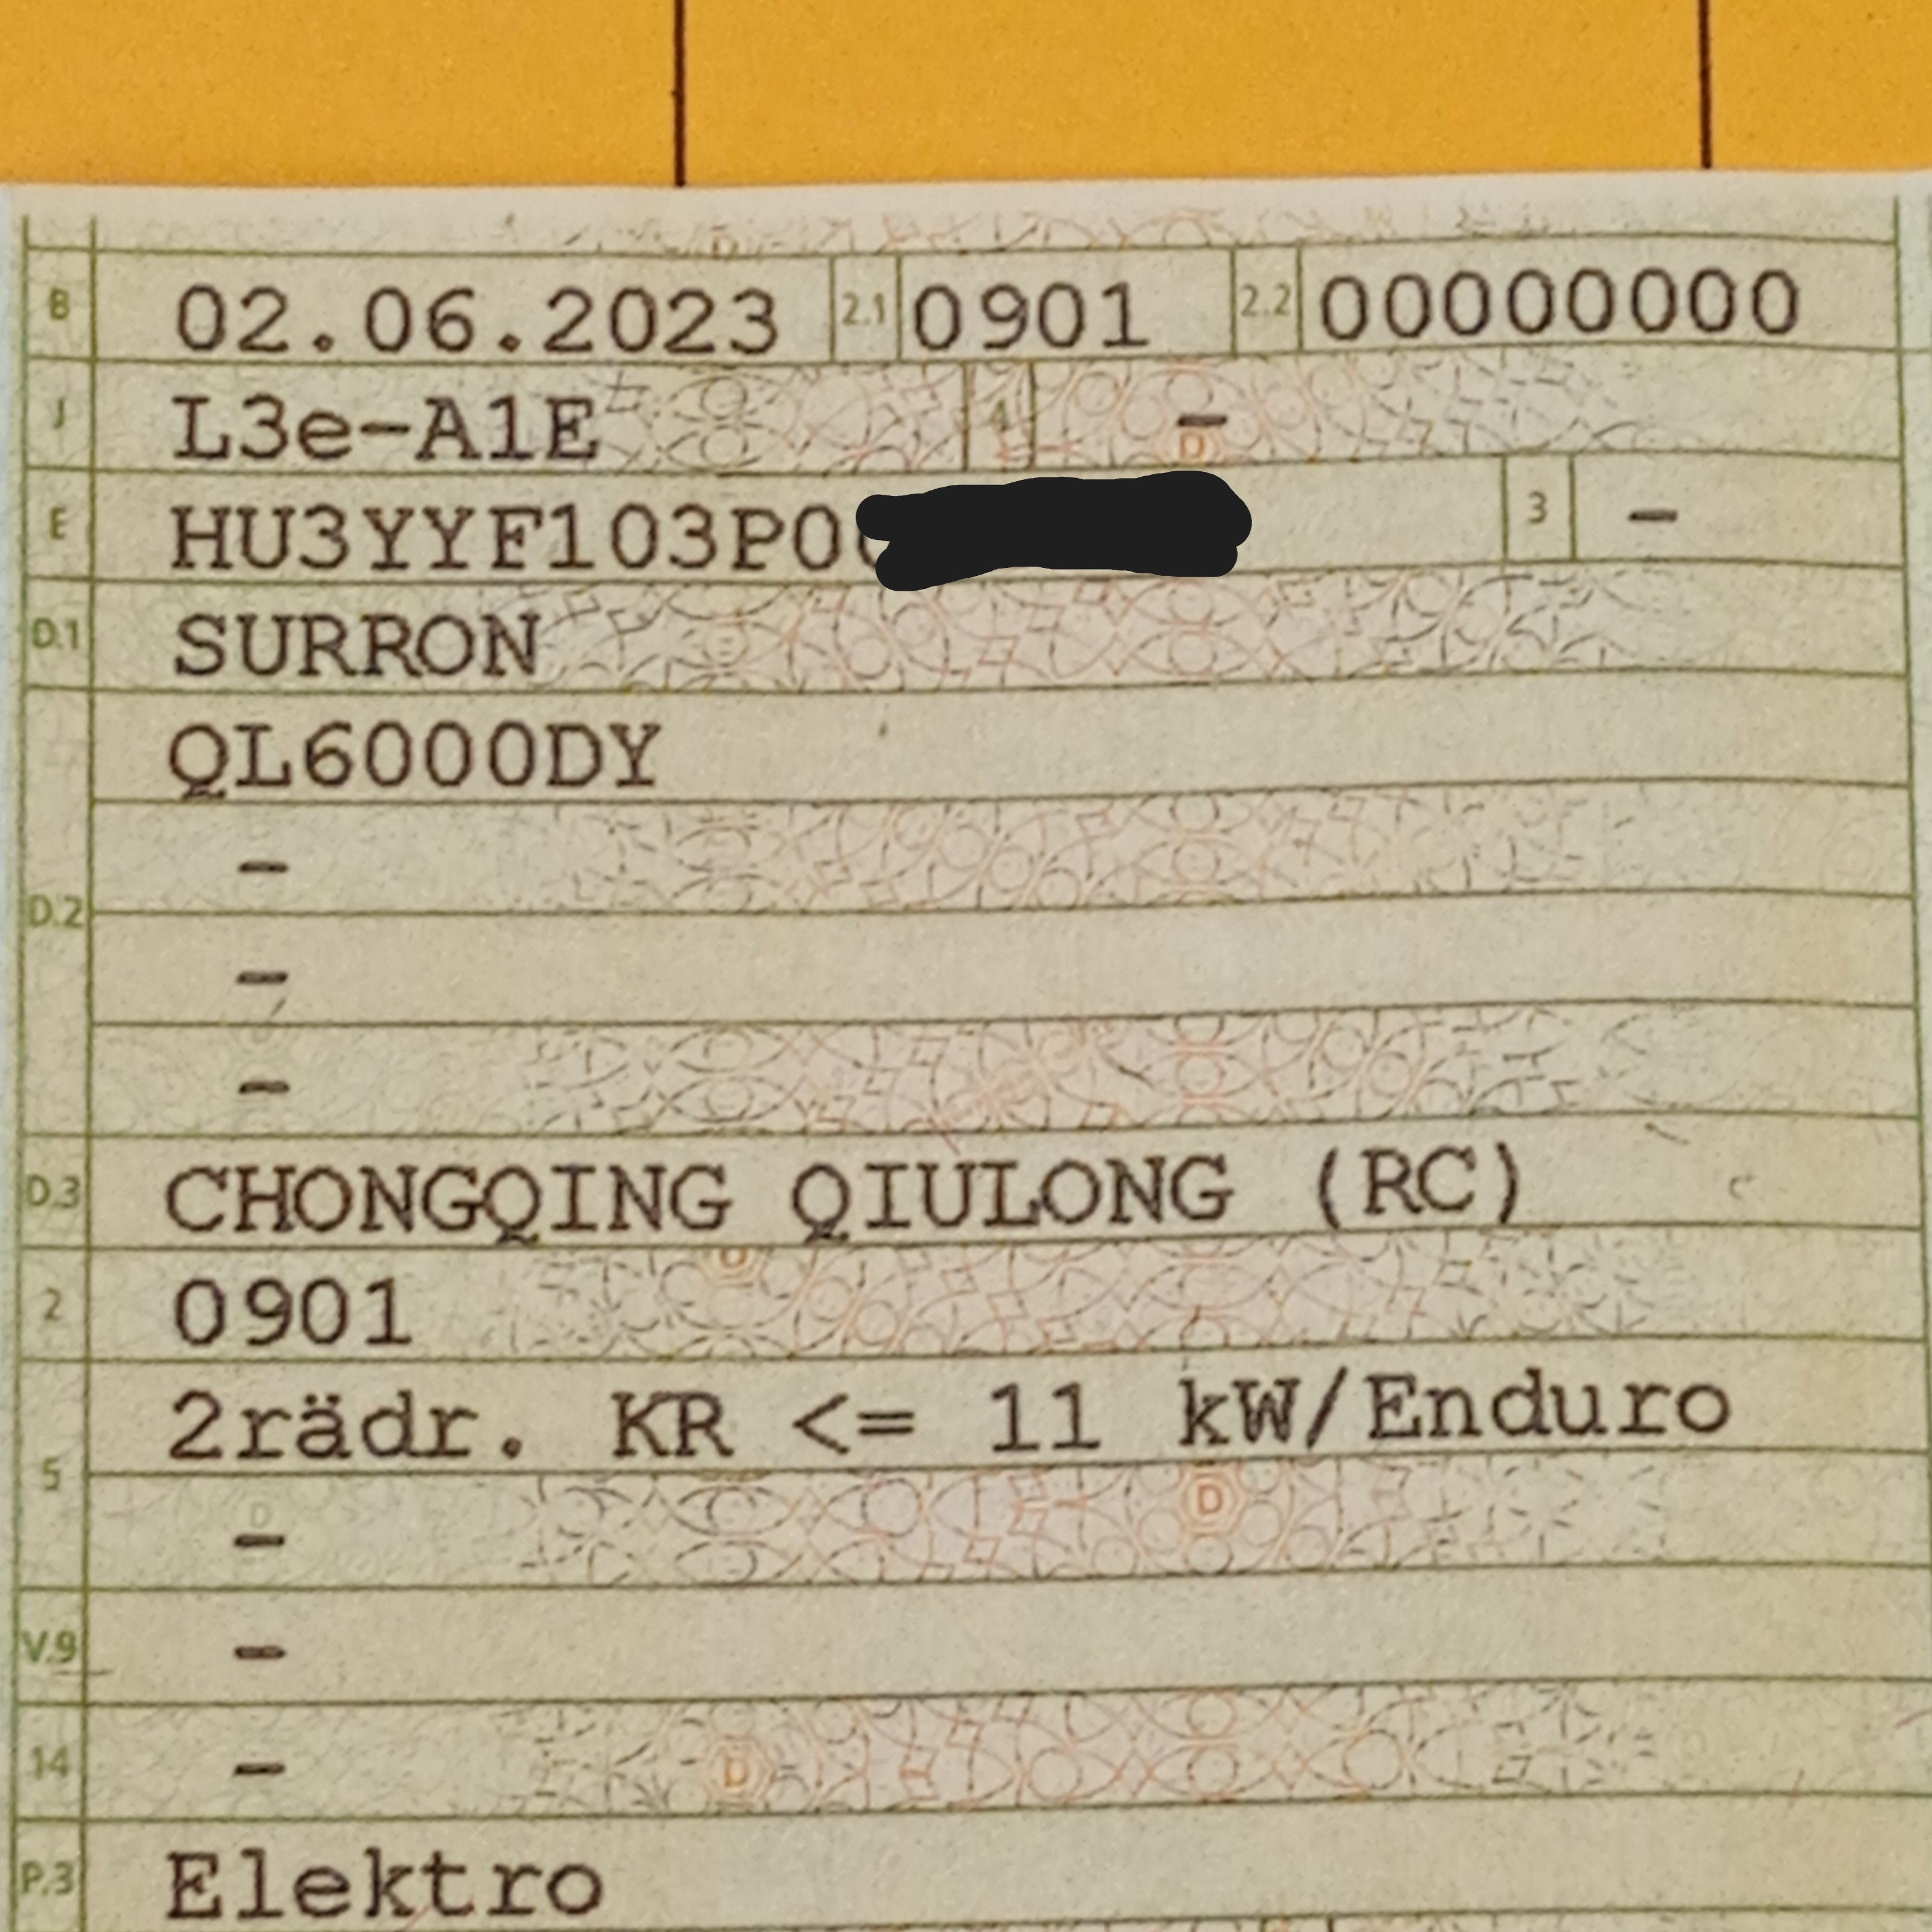 B 02.06.2023 2.1 0901 2.2 00000000
J L3e-A1E 4 -
E HU3YYF103P0 3 -
D.1 SURRON
QL6000DY
-
D.2
-
-
D.3 CHONGQING QIULONG (RC)
2 0901
2rädr. KR <= 11 kW/Enduro
5
-
V.9 -
14 -
P.3 Elektro